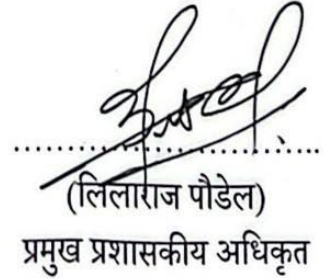 (लिलाराज पौडेल)
प्रमुख प्रशासकीय अधिकृत